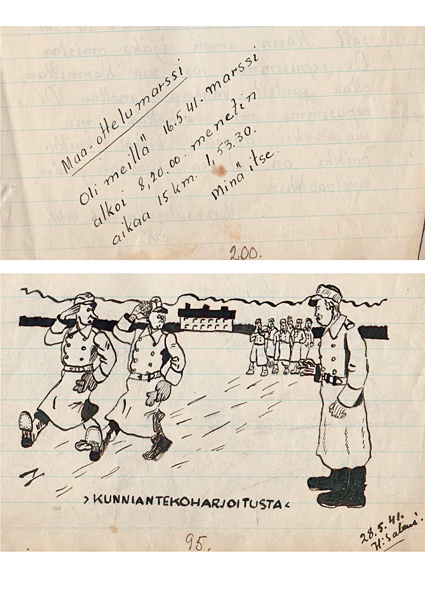 Maa-ottelumarssi
Oli meillä 16.5.41. marssi
alkoi 8,20.00. menetin
aikaa 15 km. 1,53.30.
Minä itse.
200.
›KUNNIANTEKOHARJOITUSTA‹
28.5.41.
95.